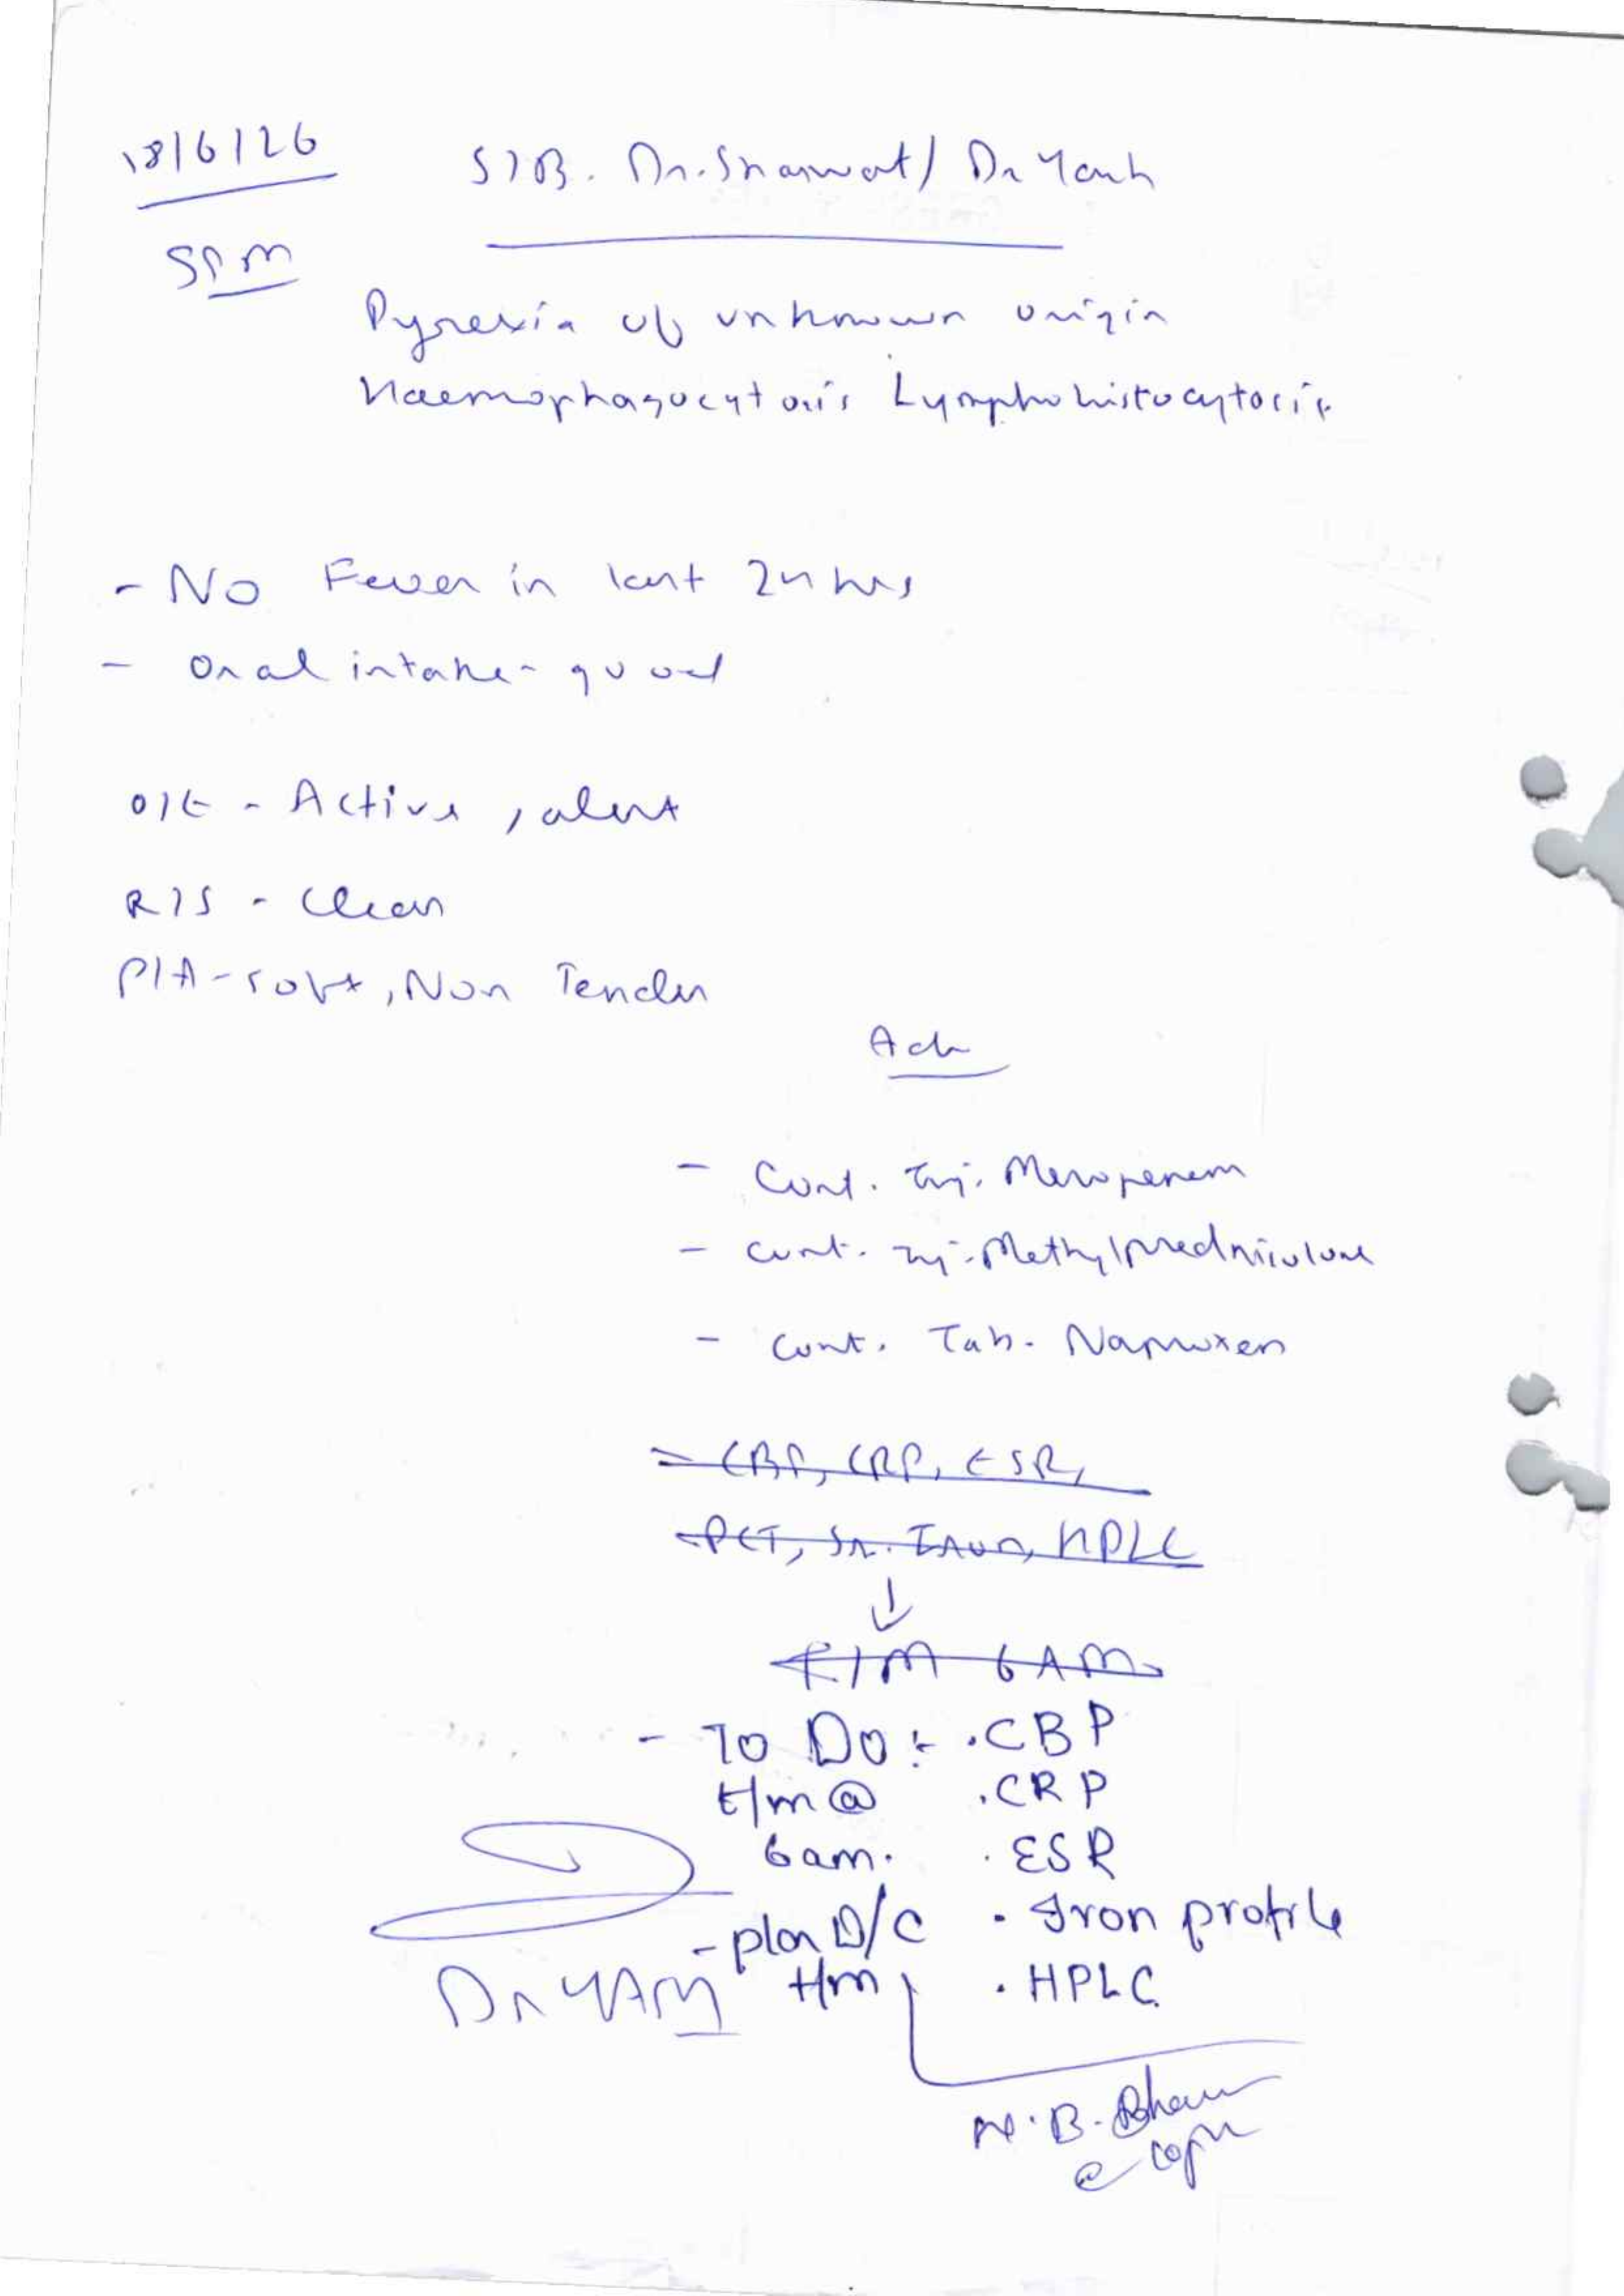 18/6/26
S/B. Dr. Sharwat / Dr Yash
5PM
Pyrexia of unknown origin
Haemophagocytosis Lymphohistocytosis
- No Fever in last 24 hrs
- Oral intake - good
O/E - Active, alert
R/S - Clear
P/A - soft, Non Tender
Adv
- Cont. Inj. Meropenem
- Cont. Inj. Methylprednisolone
- Cont. Tab. Naproxen
- CBP, CRP, ESR,
- PCT, Sr. Iron, HPLC
↓
T/M 6AM
- To Do :- . CBP
t/m @ . CRP
6am. . ESR
- plan D/C . Iron profile
t/m . HPLC
Dr YASH
N. B.
@ 6pm